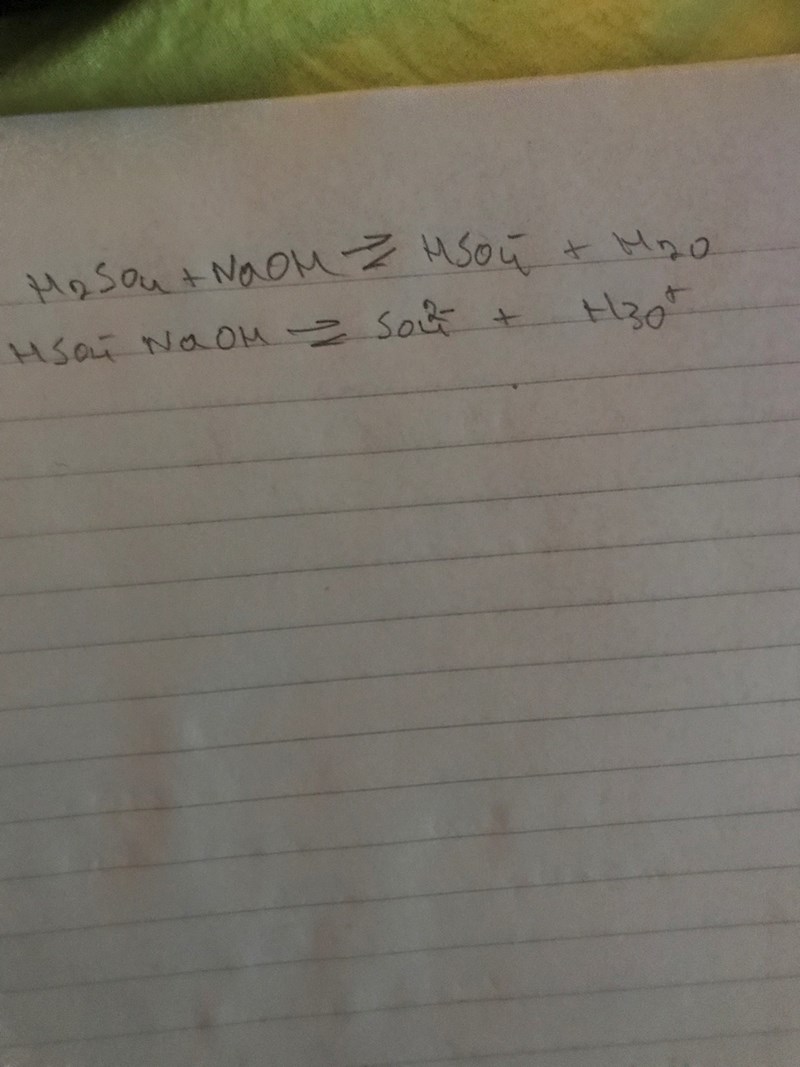 H2SO4 + NaOH ⇌ HSO4⁻ + H2O
HSO4⁻ NaOH ⇌ SO4²⁻ + H3O⁺